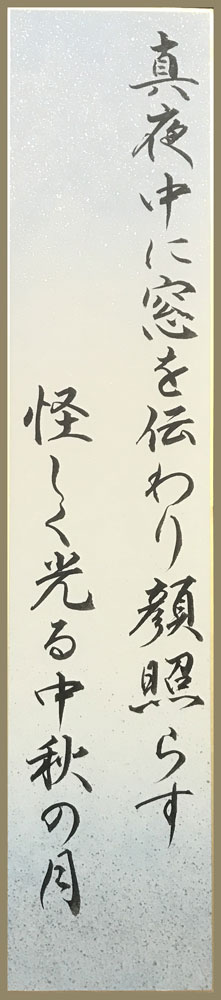 真夜中に窓を伝わり顔照らす
怪しく光る中秋の月